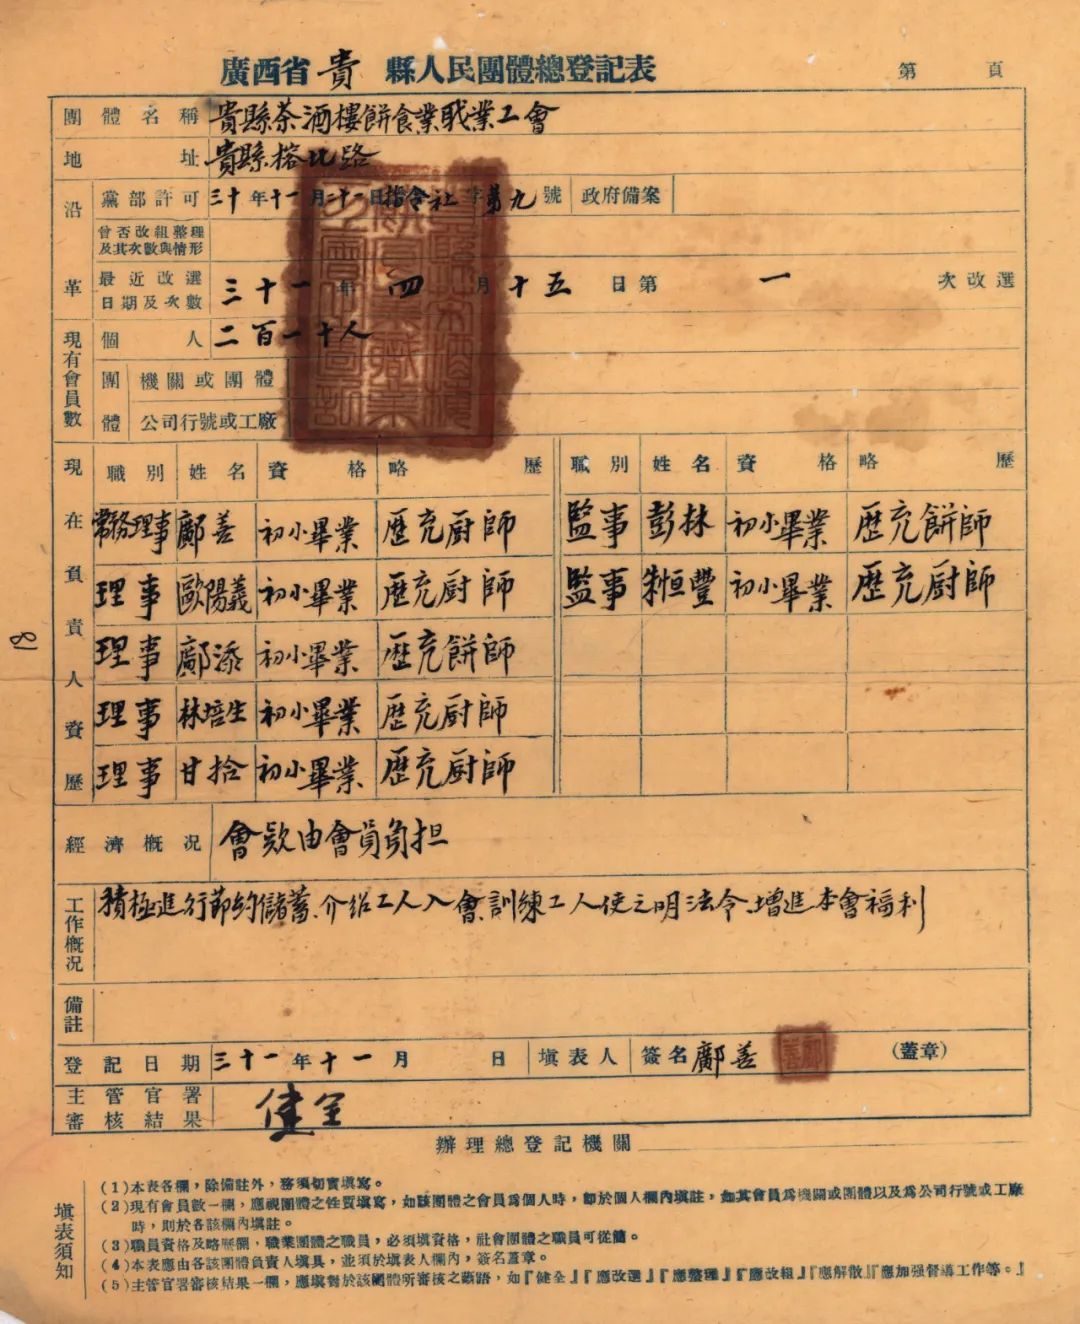 廣西省貴縣人民團體總登記表
第 頁
團體名稱 貴縣茶酒樓餅食業職業工會
地址 貴縣榕北路
沿革 黨部許可 三十年十一月二十一日指令社字第九號 政府備案
曾否改組整理及其次數與情形
最近改選日期及次數 三十一年四月十五日第一次改選
現有會員數 個人 二百一十人
團體 機關或團體
公司行號或工廠
現在負責人資歷 職別 姓名 資格 略歷 職別 姓名 資格 略歷
常務理事 鄺善 初小畢業 歷充厨師 監事 彭林 初小畢業 歷充餅師
理事 歐陽義 初小畢業 歷充厨師 監事 朱恒豐 初小畢業 歷充厨師
理事 鄺添 初小畢業 歷充餅師
理事 林培生 初小畢業 歷充厨師
理事 甘拾 初小畢業 歷充厨師
經濟概況 會欵由會員負担
工作概況 積極進行節約儲蓄、介紹工人入會、訓練工人使之明法令、增進本會福利
備註
登記日期 三十一年十一月 日 填表人 簽名 鄺善 (蓋章)
主管官署審核結果 健全
辦理總登記機關
填表須知
(1)本表各欄，除備註外，務須切實填寫。
(2)現有會員數一欄，應視團體之性質填寫，如該團體之會員為個人時，即於個人欄內填註，如其會員為機關或團體以及為公司行號或工廠
時，則於各該欄內填註。
(3)職員資格及略歷欄，職業團體之職員，必須填資格，社會團體之職員可從簡。
(4)本表應由各該團體負責人填具，並須於填表人欄內，簽名蓋章。
(5)主管官署審核結果一欄，應填對於該團體所審核之斷語，如『健全』『應改選』『應整理』『應改組』『應解散』『應加强督導工作等。』
81